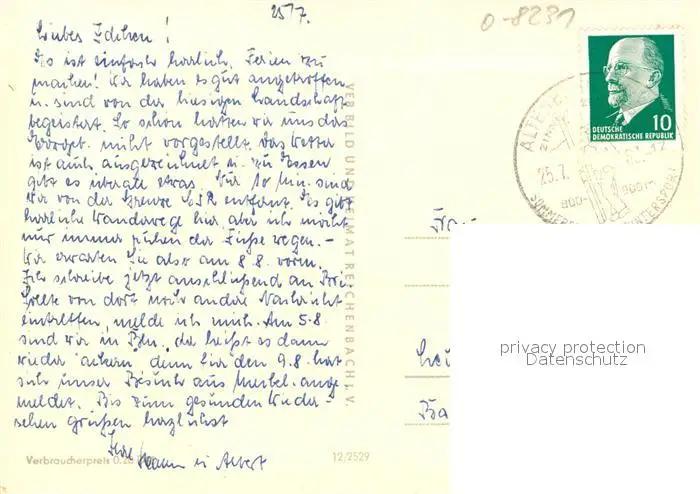 25/7.
0-8231
Liebes Idchen!
Es ist einfach herrlich, Ferien zu
machen! Wir haben es gut angetroffen
u. sind von der hiesigen Landschaft
begeistert. So schön hatten wir uns das
nicht vorgestellt. Das Wetter
ist auch ausgezeichnet u. zu Essen
gibt es überall etwas. Nur 10 Min. sind
wir von der Grenze ČSR entfernt. Es gibt
herrliche Wanderwege hier, aber ich möcht
nur immer ruhen der Füße wegen. –
Wir erwarten Sie also am 8.8. vorm.
Ich schreibe jetzt anschließend an
Sollte von dort noch andre Nachricht
eintreffen, melde ich mich. Am 5.8.
sind wir in Bln, da heißt es dann
wieder "ackern", denn für den 9.8. hat
sich unser Besuch aus ange-
meldet. Bis zum gesunden Wieder-
sehen grüßen herzlichst
Ihre u. Albert
VERBILD UND HEIMAT REICHENBACH I. V.
Verbraucherpreis 0,20
12/2529
10
DEUTSCHE
DEMOKRATISCHE REPUBLIK
25.7.
800-
900m
WINTERSPORT
Frau
privacy protection
Datenschutz